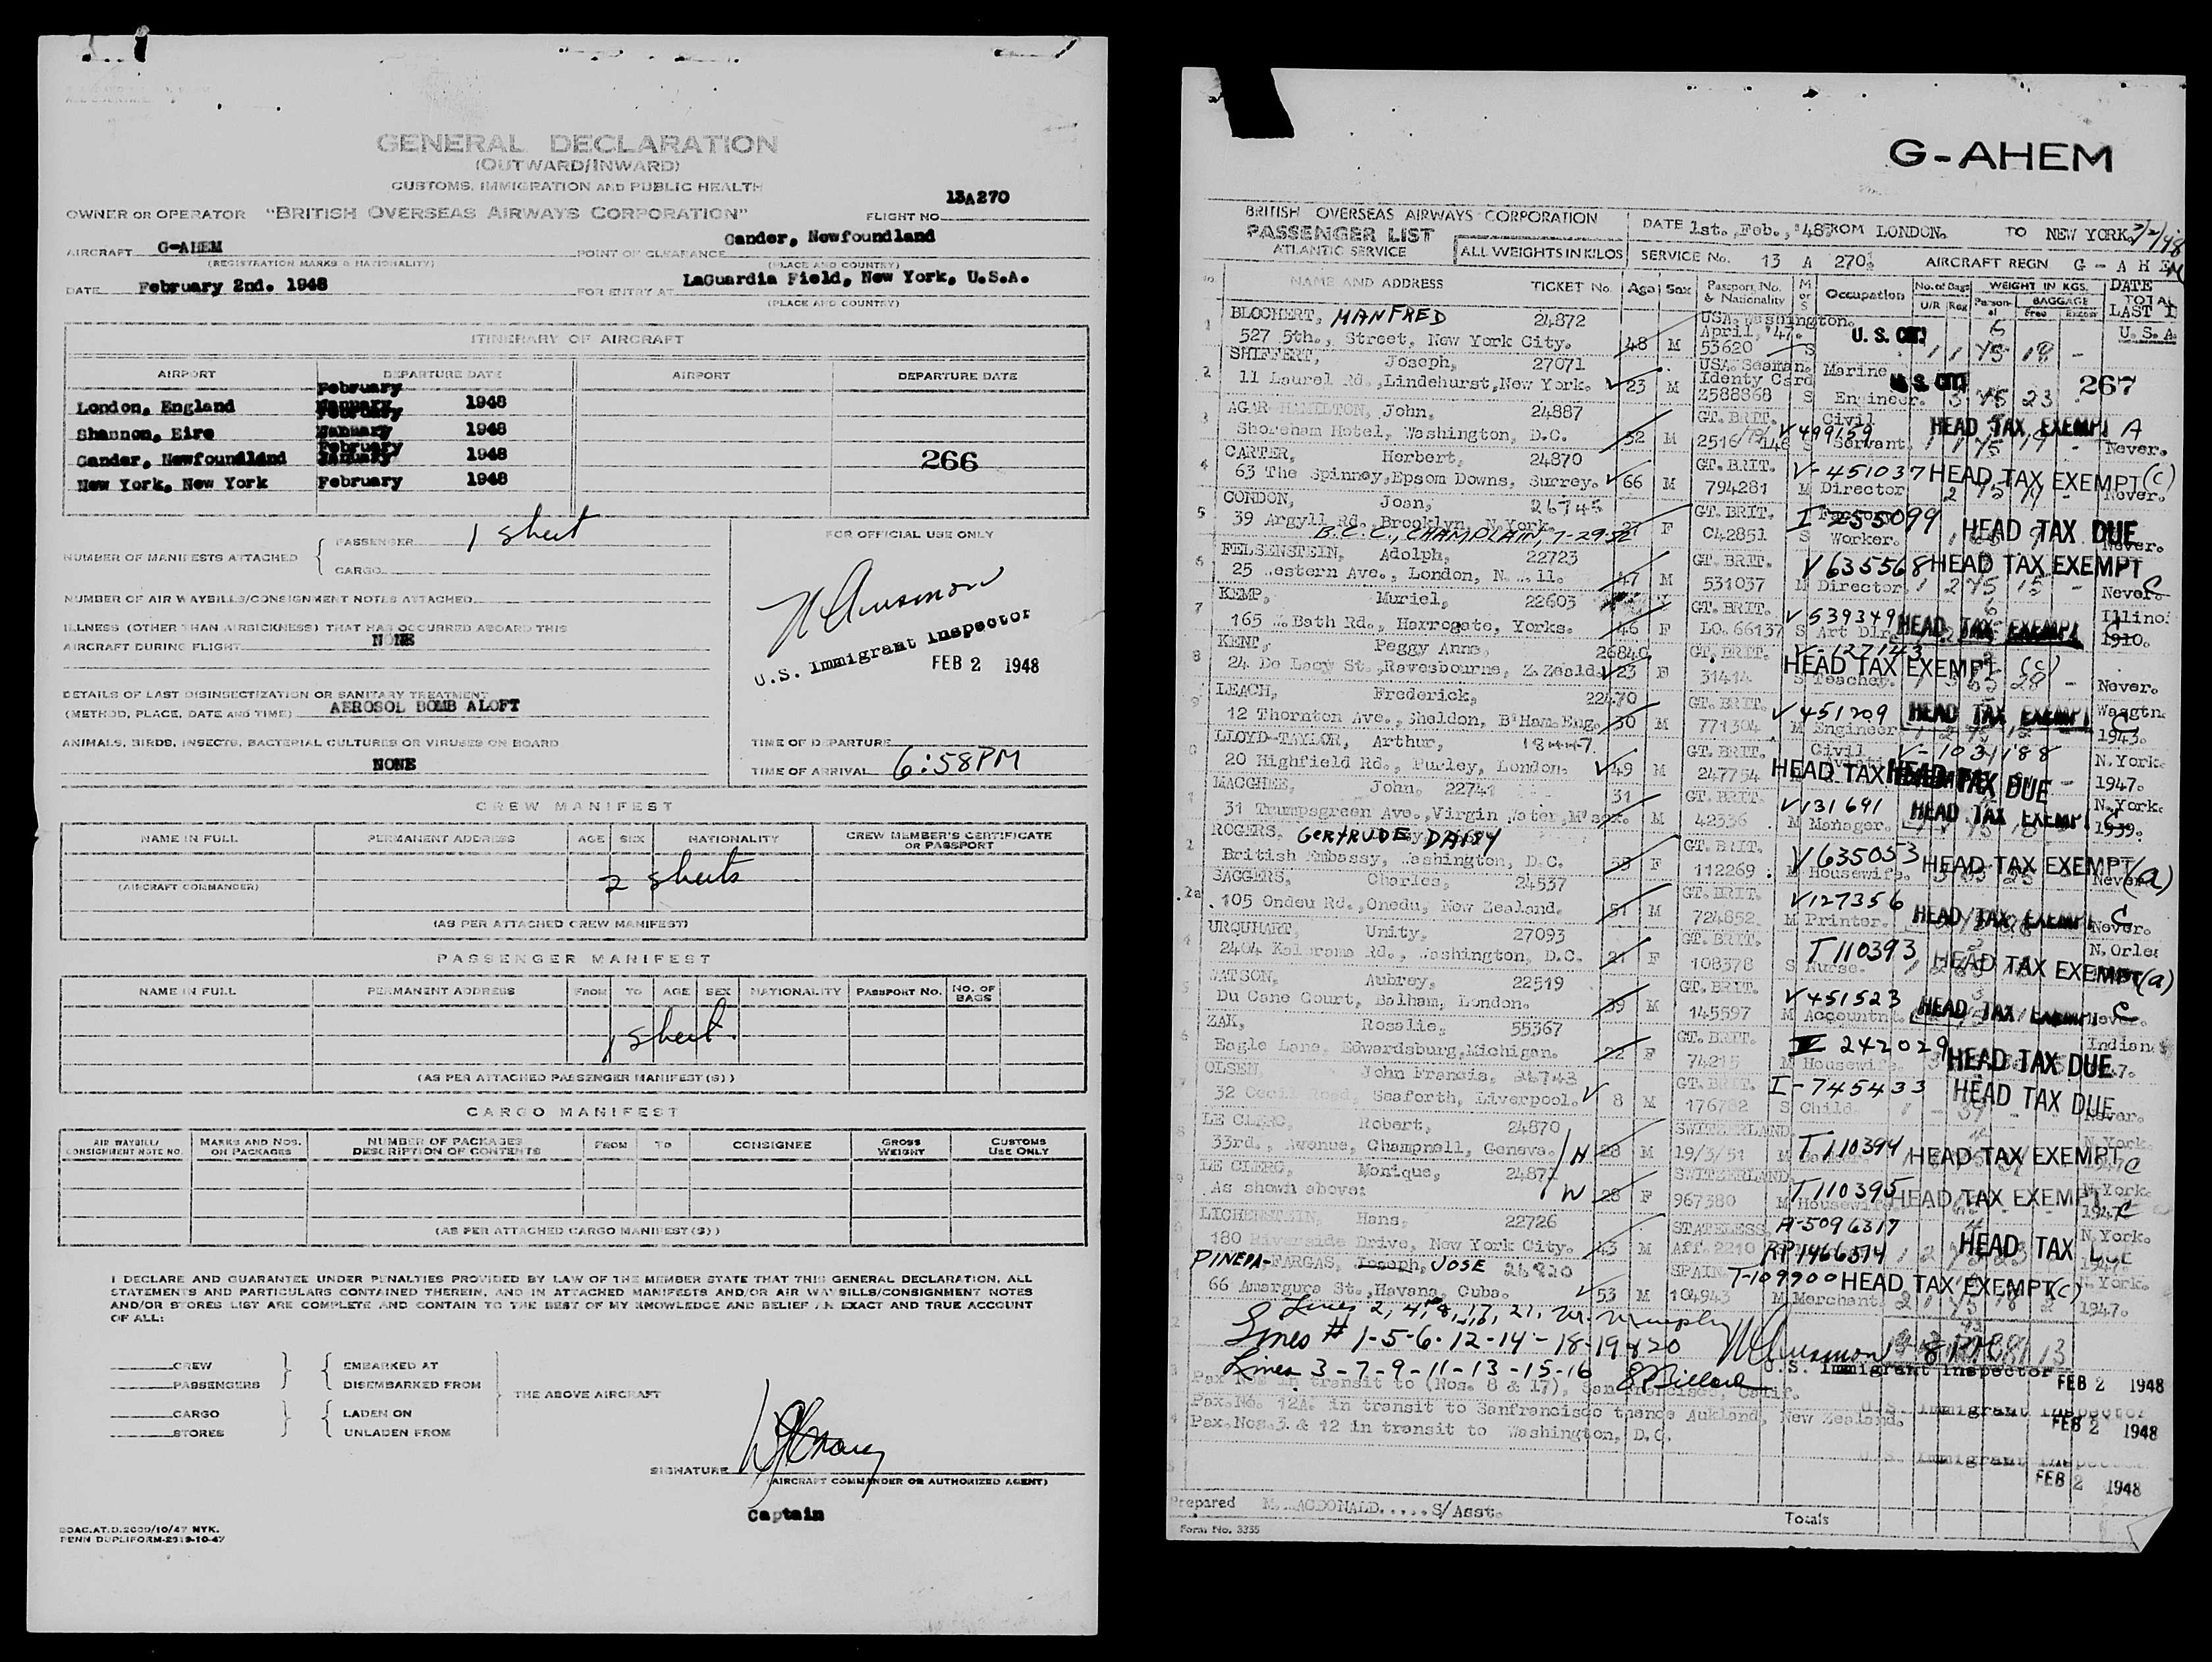 GENERAL DECLARATION
(OUTWARD/INWARD)
CUSTOMS, IMMIGRATION AND PUBLIC HEALTH
13A270
OWNER OR OPERATOR "BRITISH OVERSEAS AIRWAYS CORPORATION" FLIGHT NO.
Gander, Newfoundland
AIRCRAFT G-AHEM POINT OF CLEARANCE
(REGISTRATION MARKS & NATIONALITY) (PLACE AND COUNTRY)
LaGuardia Field, New York, U.S.A.
DATE February 2nd. 1948 FOR ENTRY AT
(PLACE AND COUNTRY)
ITINERARY OF AIRCRAFT
AIRPORT DEPARTURE DATE AIRPORT DEPARTURE DATE
London, England February 1948
Shannon, Eire February 1948
Gander, Newfoundland February 1948 266
New York, New York February 1948
NUMBER OF MANIFESTS ATTACHED
PASSENGER 1 sheet
CARGO
FOR OFFICIAL USE ONLY
NUMBER OF AIR WAYBILLS/CONSIGNMENT NOTES ATTACHED
ILLNESS (OTHER THAN AIRSICKNESS) THAT HAS OCCURRED ABOARD THIS
AIRCRAFT DURING FLIGHT NONE
U.S. Immigrant Inspector
FEB 2 1948
DETAILS OF LAST DISINSECTIZATION OR SANITARY TREATMENT
(METHOD, PLACE, DATE AND TIME) AEROSOL BOMB ALOFT
ANIMALS, BIRDS, INSECTS, BACTERIAL CULTURES OR VIRUSES ON BOARD
NONE
TIME OF DEPARTURE
TIME OF ARRIVAL 6:58PM
CREW MANIFEST
NAME IN FULL PERMANENT ADDRESS AGE SEX NATIONALITY CREW MEMBER'S CERTIFICATE OR PASSPORT
2 sheets
(AIRCRAFT COMMANDER)
(AS PER ATTACHED CREW MANIFEST)
PASSENGER MANIFEST
NAME IN FULL PERMANENT ADDRESS FROM TO AGE SEX NATIONALITY PASSPORT NO. NO. OF BAGS
1 sheet
(AS PER ATTACHED PASSENGER MANIFEST(S))
CARGO MANIFEST
AIR WAYBILL/ CONSIGNMENT NOTE NO. MARKS AND NOS. ON PACKAGES NUMBER OF PACKAGES DESCRIPTION OF CONTENTS FROM TO CONSIGNEE GROSS WEIGHT CUSTOMS USE ONLY
(AS PER ATTACHED CARGO MANIFEST(S))
I DECLARE AND GUARANTEE UNDER PENALTIES PROVIDED BY LAW OF THE MEMBER STATE THAT THIS GENERAL DECLARATION, ALL
STATEMENTS AND PARTICULARS CONTAINED THEREIN, AND IN ATTACHED MANIFESTS AND/OR AIR WAYBILLS/CONSIGNMENT NOTES
AND/OR STORES LIST ARE COMPLETE AND CONTAIN TO THE BEST OF MY KNOWLEDGE AND BELIEF AN EXACT AND TRUE ACCOUNT
OF ALL:
CREW EMBARKED AT
PASSENGERS DISEMBARKED FROM
THE ABOVE AIRCRAFT
CARGO LADEN ON
STORES UNLADEN FROM
SIGNATURE
(AIRCRAFT COMMANDER OR AUTHORIZED AGENT)
Captain
BOAC.AT.D.2000/10/47 NYK.
PENN DUPLIFORM-2319-10-47
G-AHEM
BRITISH OVERSEAS AIRWAYS CORPORATION
PASSENGER LIST
ATLANTIC SERVICE
ALL WEIGHTS IN KILOS
DATE 1st. Feb., '48 FROM LONDON. TO NEW YORK. 2/2/48
SERVICE No. 13 A 270 AIRCRAFT REGN. G - A H E M
NAME AND ADDRESS TICKET No. Age Sex Passport No. & Nationality M or S Occupation No. of Bags U/R Reg WEIGHT IN KGS. Personal BAGGAGE Free Excess DATE TOTAL LAST I
1 BLOCHERT, MANFRED 24872 USA. Washington. April, '47. U.S. CIT. U.S.A.
527 5th., Street, New York City. 48 M 53620 S 1 1 75 18 -
2 SHIFFERT, Joseph, 27071 USA. Seaman. Identy Card Marine U.S. CIT. 267
11 Laurel Rd., Lindehurst, New York. 23 M Z588868 S Engineer. 3 75 23
3 AGAR-HAMILTON, John, 24887 GT. BRIT. Civil V 499159 HEAD TAX EXEMPT A
Shoreham Hotel, Washington, D.C. 52 M Servant. Never.
4 CARTER, Herbert, 24870 GT. BRIT. V-451037 HEAD TAX EXEMPT (C)
63 The Spinney, Epsom Downs, Surrey. 66 M 794281 M Director Never.
5 CONDON, Joan, 26745 GT. BRIT. I 255099 HEAD TAX DUE
39 Argyll Rd., Brooklyn, N.York. 27 F C42851 S Worker. Never.
B.C.C., CHAMPLAIN, 7-29-52
6 FELSENSTEIN, Adolph, 22723 GT. BRIT. V 635568 HEAD TAX EXEMPT C
25 Western Ave., London, N.W. 11. 47 M 531037 M Director. 1 2 75 15 - Never.
7 KEMP, Muriel, 22603 GT. BRIT. V 539349 HEAD TAX EXEMPT Illinoi
165 W. Bath Rd., Harrogate, Yorks. 46 F LO. 66137 S Art Dire 1910.
8 KENT, Peggy Anne, 26840 GT. BRIT. V-127143 HEAD TAX EXEMPT (C)
24 De Lacy St., Ravesbourne, Z. Zeald. 23 F 31414 S Teacher. Never.
9 LEACH, Frederick, 22470 GT. BRIT. V 451209 HEAD TAX EXEMPT C Wasgtn.
12 Thornton Ave., Sheldon, B'Ham.Eng. 30 M 771304 M Engineer 1943.
LLOYD-TAYLOR, Arthur, GT. BRIT. Civil V-1031188 N.York.
20 Highfield Rd., Purley, London. 49 M 247754 HEAD TAX HEAD TAX DUE 1947.
MACGHEE, John, 22741 31 GT. BRIT. V 131691 HEAD TAX EXEMPT C N.York.
31 Trumpsgreen Ave., Virgin Water, M'sex. M 42336 M Manager. 1939.
ROGERS, GERTRUDE DAISY GT. BRIT. V 635053 HEAD TAX EXEMPT (a)
British Embassy, Washington, D.C. 55 F 112269 M Housewife. Never
12a SAGGERS, Charles, 24537 GT. BRIT. V127356 HEAD TAX EXEMPT C
105 Ondeu Rd., Onedu, New Zealand. 51 M 724852 M Printer. Never.
URQUHART, Unity, 27093 GT. BRIT. T 110393 HEAD TAX EXEMPT (a) N.Orlea
2404 Kalorama Rd., Washington, D.C. 21 F 108378 S Nurse.
WATSON, Aubrey, 22519 GT. BRIT. V 451523 HEAD TAX EXEMPT C
Du Cane Court, Balham, London. 39 M 145597 M Accountnt. Never.
ZAK, Rosalie, 55367 GT. BRIT. 242029 HEAD TAX DUE Indian
Eagle Lane, Edwardsburg, Michigan. 22 F 74215 M Housewife.
OLSEN, John Francis, 26743 GT. BRIT. I-745433 HEAD TAX DUE
32 Cecil Road, Seaforth, Liverpool. 8 M 176782 S Child. Never.
LE CLERC, Robert, 24870 SWITZERLAND. T 110394 HEAD TAX EXEMPT C N.York.
33rd., Avenue, Champnell, Geneva. H 28 M 19/3/51 M
LE CLERC, Monique, 24871 SWITZERLAND. T 110395 HEAD TAX EXEMPT C N.York.
As shown above: W 28 F 967380 M Housewife. 1947
LICHENSTEIN, Hans, 22726 STATELESS A-5096317 N.York.
180 Riverside Drive, New York City. 43 M Aff. 2210 RP1466574 HEAD TAX DUE
PINEDA-FARGAS, Joseph, JOSE 26820 SPAIN T-109900 HEAD TAX EXEMPT (C) N.York.
66 Amargura St., Havana, Cuba. 53 M 104943 M Merchant. 2 1 75 18 2 1947.
Lines 2, 4, 8, 17, 21,
Lines # 1-5-6-12-14-18-19 & 20
Lines 3-7-9-11-13-15-16
U.S. Immigrant Inspector FEB 2 1948
in transit to (Nos. 8 & 17), San Francisco, Calif.
Pax.No. 12A. in transit to Sanfrancisco thence Aukland, New Zealand.
U.S. Immigrant Inspector FEB 2 1948
Pax.Nos.3.& 12 in transit to Washington, D.C.
U.S. Immigrant Inspector
FEB 2 1948
Prepared M. MACDONALD.....S/Asst. Totals
Form No. 3335